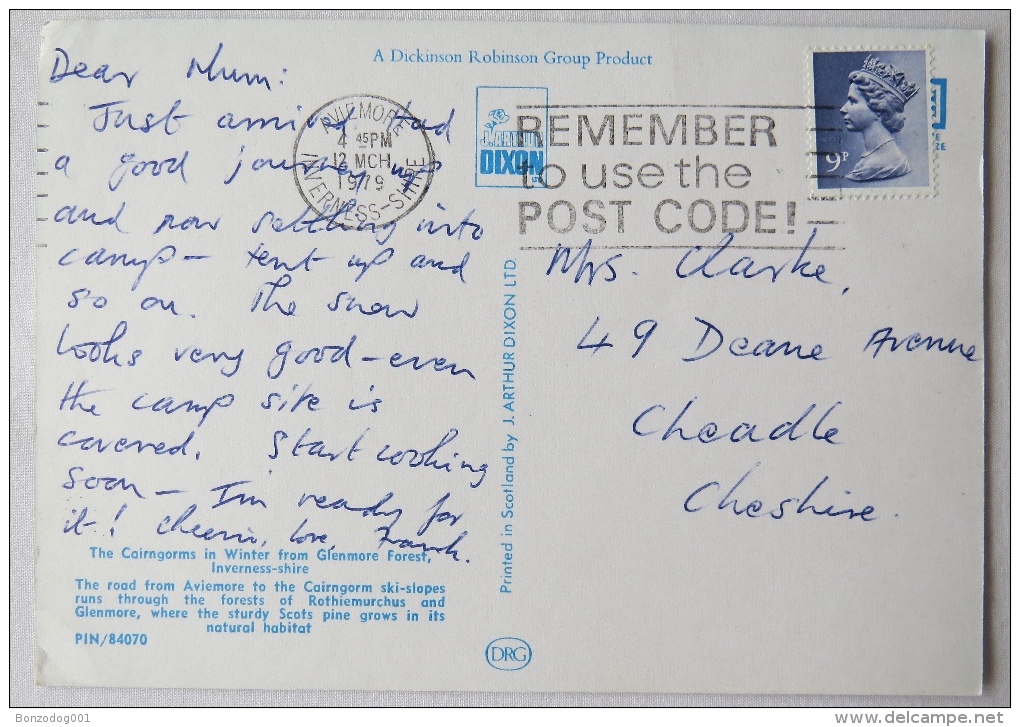 A Dickinson Robinson Group Product
Dear Mum:
Just arrived had
a good journey up
and now settling into
camp – tent up and
so on. The snow
looks very good – even
the camp site is
covered. Start cooking
soon – I'm ready for
it! Cheerio, love, Frank.
The Cairngorms in Winter from Glenmore Forest,
Inverness-shire
The road from Aviemore to the Cairngorm ski-slopes
runs through the forests of Rothiemurchus and
Glenmore, where the sturdy Scots pine grows in its
natural habitat
PIN/84070
AVIEMORE
4 45PM
12 MCH
1979
INVERNESS-SHIRE
J. ARTHUR
DIXON
REMEMBER
to use the
POST CODE!
9P
Printed in Scotland by J. ARTHUR DIXON LTD.
Mrs. Clarke,
49 Deane Avenue
Cheadle
Cheshire.
DRG
Bonzodog001
delcampe.net